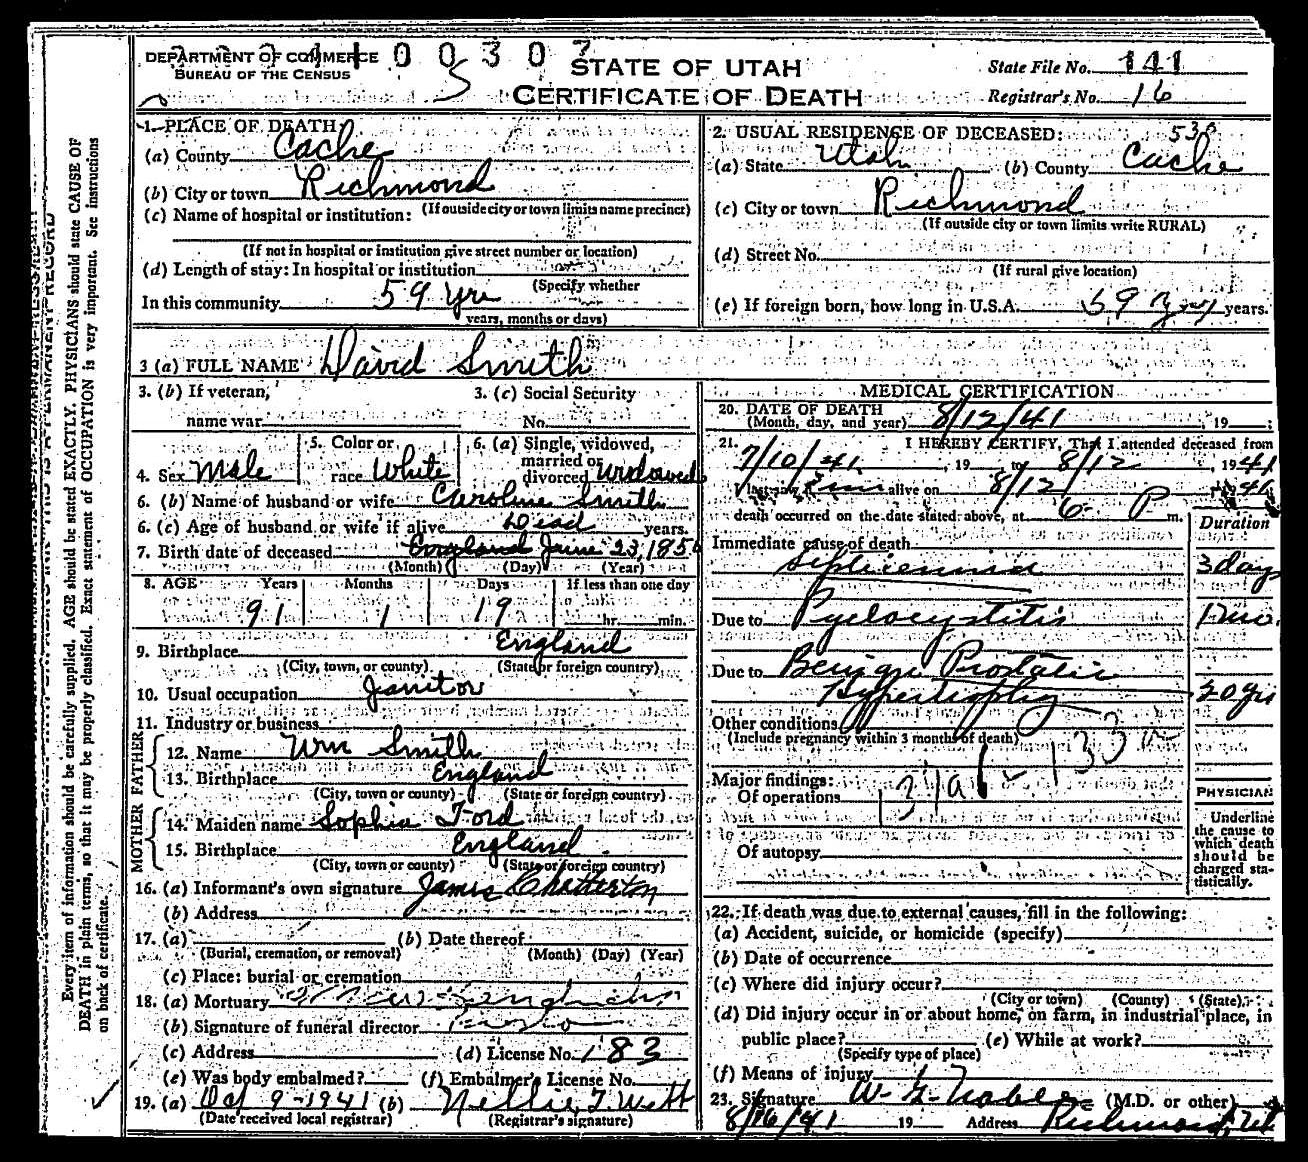 DEPARTMENT OF COMMERCE
BUREAU OF THE CENSUS
0 0 3 0 7
STATE OF UTAH
CERTIFICATE OF DEATH
State File No. 141
Registrar's No. 16
1. PLACE OF DEATH
(a) County Cache
(b) City or town Richmond
(If outside city or town limits name precinct)
(c) Name of hospital or institution:
(If not in hospital or institution give street number or location)
(d) Length of stay: In hospital or institution
(Specify whether
In this community 59 yrs
years, months or days)
2. USUAL RESIDENCE OF DECEASED:
(a) State Utah (b) County Cache
(c) City or town Richmond
(If outside city or town limits write RURAL)
(d) Street No.
(If rural give location)
(e) If foreign born, how long in U.S.A. 59 years.
3 (a) FULL NAME David Smith
3. (b) If veteran,
name war
3. (c) Social Security
No.
4. Sex Male
5. Color or
race White
6. (a) Single, widowed,
married or
divorced Widowed
6. (b) Name of husband or wife Caroline Smith
6. (c) Age of husband or wife if alive Dead years.
7. Birth date of deceased England June 23, 1850
(Month) (Day) (Year)
8. AGE Years Months Days If less than one day
91 1 19 hr. min.
9. Birthplace England
(City, town, or county) (State or foreign country)
10. Usual occupation Janitor
11. Industry or business
FATHER
12. Name Wm Smith
13. Birthplace England
(City, town or county) (State or foreign country)
MOTHER
14. Maiden name Sophia Ford
15. Birthplace England
(City, town or county) (State or foreign country)
16. (a) Informant's own signature James Chatterton
(b) Address
17. (a) (b) Date thereof
(Burial, cremation, or removal) (Month) (Day) (Year)
(c) Place: burial or cremation
18. (a) Mortuary
(b) Signature of funeral director
(c) Address (d) License No. 183
(e) Was body embalmed? (f) Embalmer's License No.
19. (a) Oct 9-1941 (b) Nellie T. Webb
(Date received local registrar) (Registrar's signature)
MEDICAL CERTIFICATION
20. DATE OF DEATH
(Month, day, and year) 8/12/41 , 19 ;
21. I HEREBY CERTIFY, That I attended deceased from
7/10/41 , 19 to 8/12 , 1941
I last saw him alive on 8/12 , 1941
death occurred on the date stated above, at 6- P m.
Duration
Immediate cause of death
Septicemia 3 days
Due to Pyelocystitis 1 mo.
Due to Benign Prostatic
Hypertrophy 20 yrs
Other conditions
(Include pregnancy within 3 months of death)
Major findings:
Of operations
Of autopsy
PHYSICIAN
Underline
the cause to
which death
should be
charged sta-
tistically.
22. If death was due to external causes, fill in the following:
(a) Accident, suicide, or homicide (specify)
(b) Date of occurrence
(c) Where did injury occur?
(City or town) (County) (State)
(d) Did injury occur in or about home, on farm, in industrial place, in
public place? (e) While at work?
(Specify type of place)
(f) Means of injury
23. Signature W. G. Noble (M.D. or other)
8/16/41 19 Address Richmond, Ut
Every item of information should be carefully supplied. AGE should be stated EXACTLY. PHYSICIANS should state CAUSE OF
DEATH in plain terms, so that it may be properly classified. Exact statement of OCCUPATION is very important. See instructions
on back of certificate.